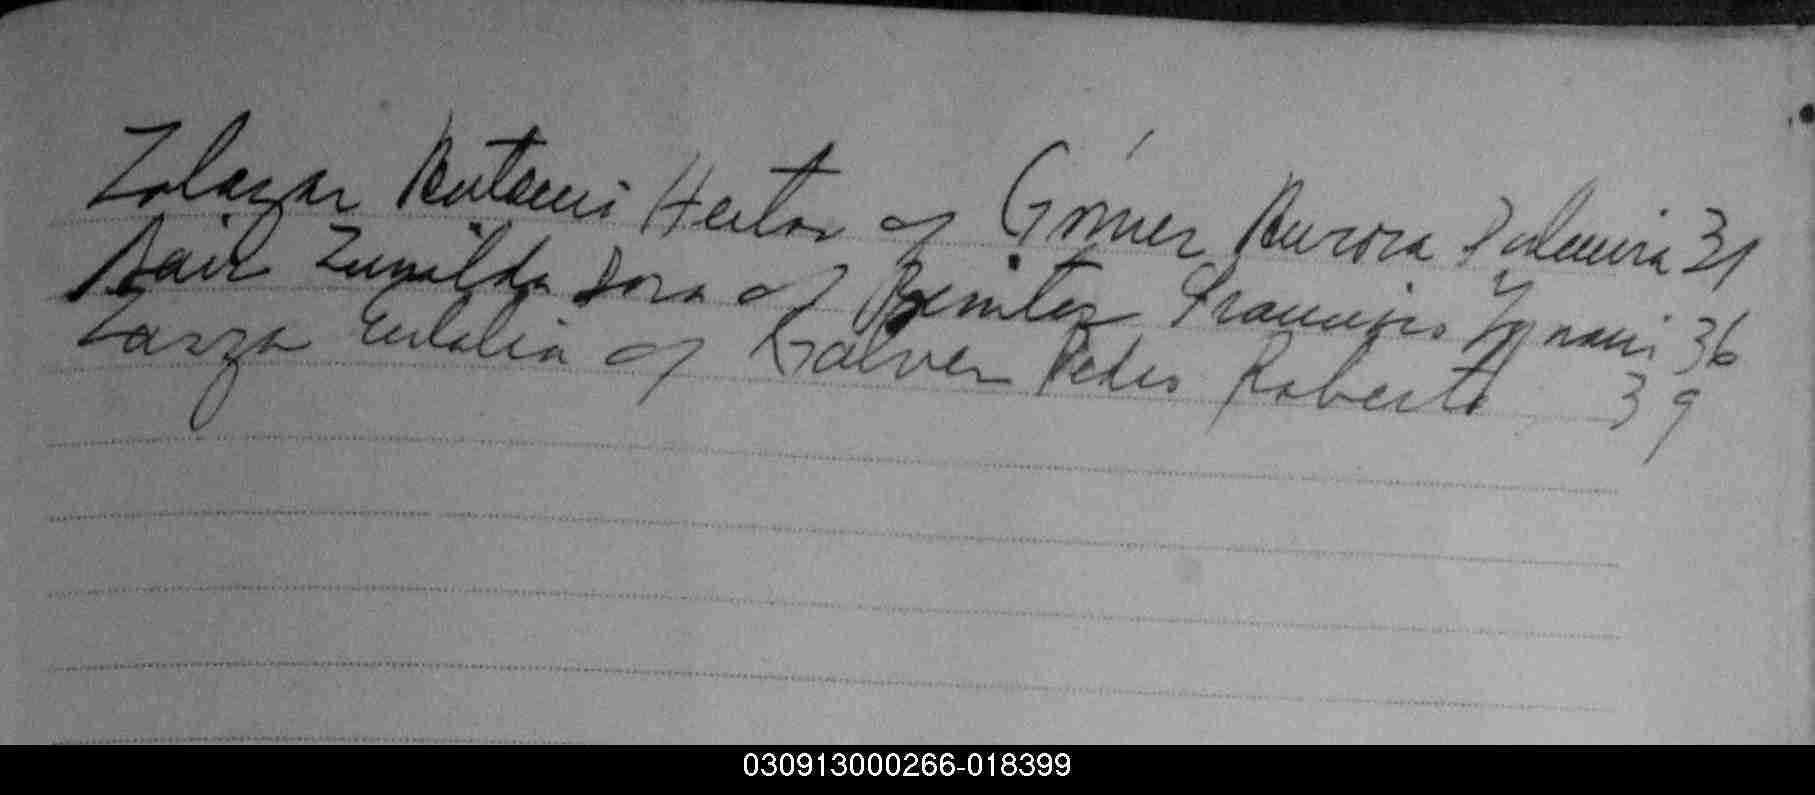 Zalazar Antonio Hector y Gómez Aurora Palmira 31
Zunilda Dora y Benitez Francisco Ignacio 36
Zarza Eulalia y Galvez Pedro Roberto 39
030913000266-018399